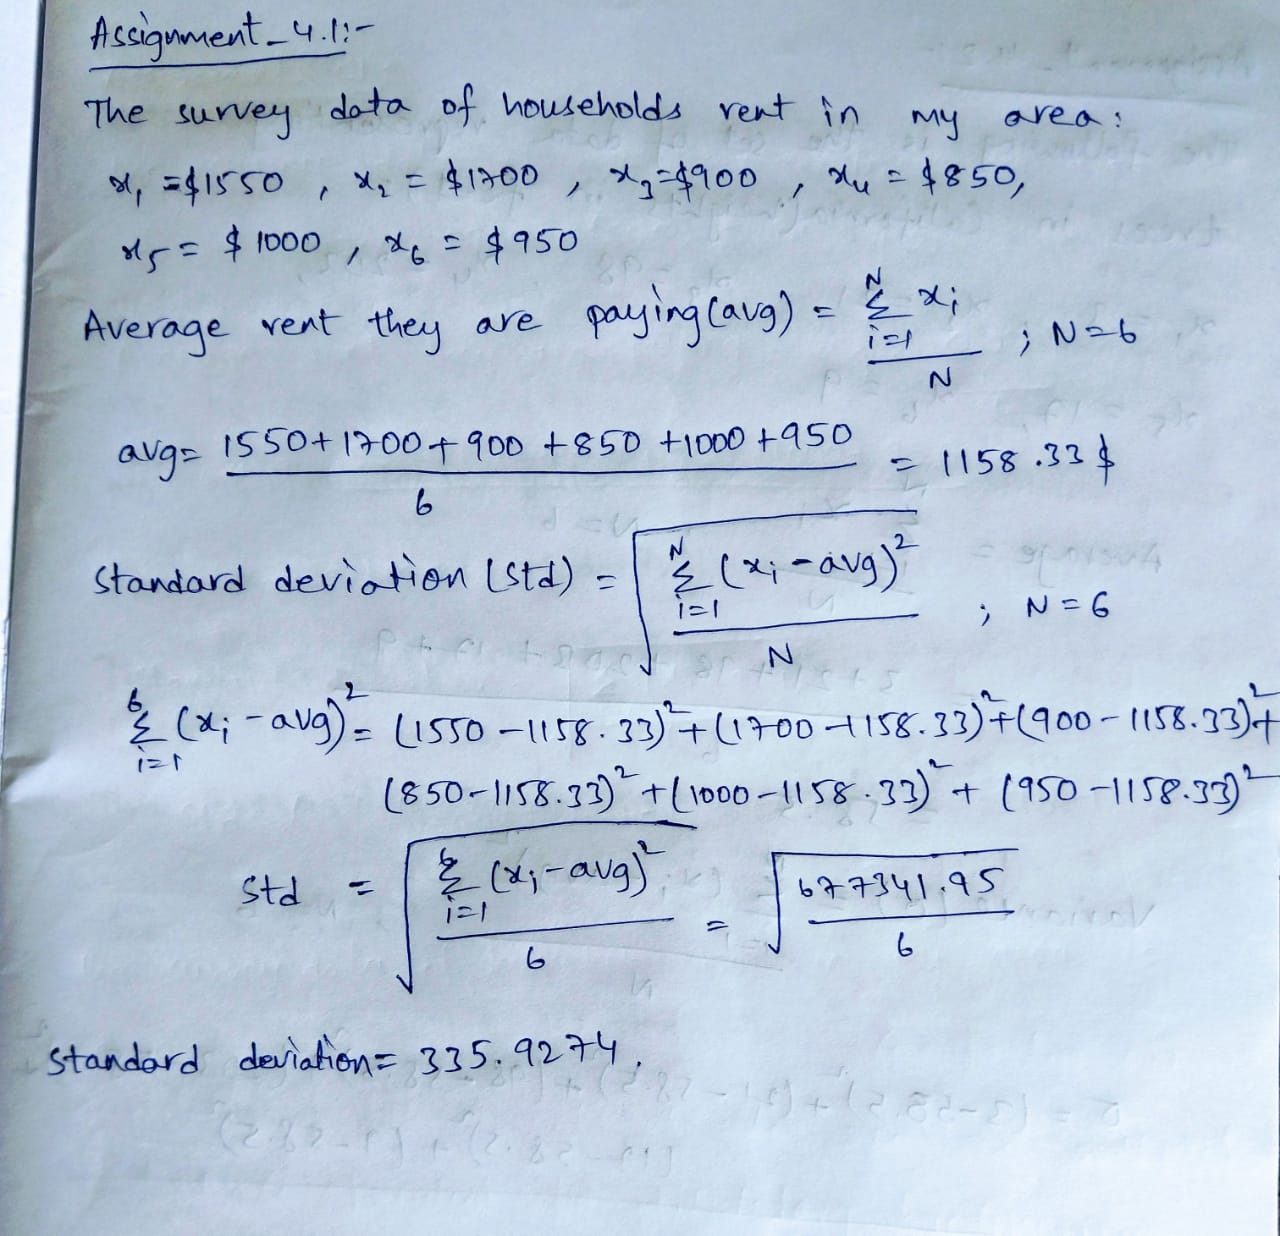 Assignment_4.1:-
The survey data of households rent in my area:
x₁ = $1550 , x₂ = $1700 , x₃ = $900 , x₄ = $850,
x₅ = $1000 , x₆ = $950
Average rent they are paying (avg) = Σ_{i=1}^{N} xᵢ / N ; N=6
avg = (1550+1700+900+850+1000+950) / 6 = 1158.33 $
Standard deviation (std) = √(Σ_{i=1}^{N} (xᵢ - avg)² / N) ; N=6
Σ_{i=1}^{6} (xᵢ - avg)² = (1550-1158.33)² + (1700-1158.33)² + (900-1158.33)² +
(850-1158.33)² + (1000-1158.33)² + (950-1158.33)²
Std = √(Σ_{i=1}^{6} (xᵢ - avg)² / 6) = √(677341.95 / 6)
Standard deviation = 335.9274.